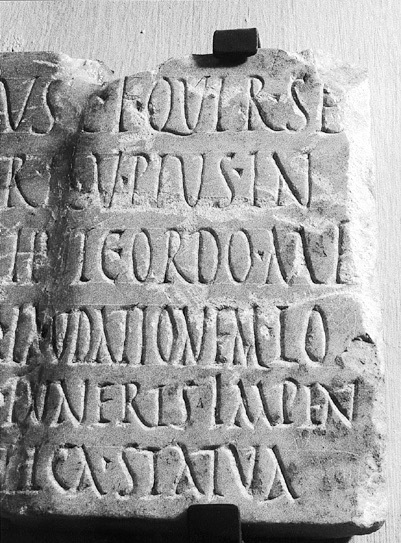 VS ET QVIR · SE
R · PIVS · IN
H IC ORDO · MVI
VDATIONEM LO
MVNERIS IMPEN
ICA · STATVA